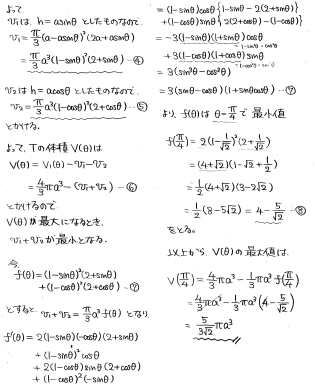 よって
V₁は、h=asinθ としたものなので、
V₁ = π/3 (a-asinθ)²(2a+asinθ)
= π/3 a³(1-sinθ)²(2+sinθ) …④
V₂は h=acosθ としたものなので、
V₂ = π/3 a³(1-cosθ)²(2+cosθ) …⑤
とかける。
よって、Tの体積 V(θ)は
V(θ) = V₁(θ)-V₁-V₂
= 4/3 πa³ - (V₁+V₂) …⑥
とかけるので
V(θ)が最大になるとき、
V₁+V₂が最小となる。
今
f(θ) = (1-sinθ)²(2+sinθ)
+(1-cosθ)²(2+cosθ) …⑦
とすると、V₁+V₂ = π/3 a³ f(θ) となり
f'(θ) = 2(1-sinθ)(-cosθ)(2+sinθ)
+ (1-sinθ)² cosθ
+ 2(1-cosθ)sinθ(2+cosθ)
+ (1-cosθ)²(-sinθ)
= (1-sinθ)cosθ{1-sinθ-2(2+sinθ)}
+(1-cosθ)sinθ{2(2+cosθ)-(1-cosθ)}
= -3(1-sinθ)(1+sinθ)cosθ
1-sin²θ=cos²θ
+3(1-cosθ)(1+cosθ)sinθ
1-cos²θ=sin²θ
= 3(sin³θ-cos³θ)
= 3(sinθ-cosθ)(1+sinθcosθ) …⑦
より、f(θ)は θ=π/4 で 最小値
f(π/4) = 2(1-1/√2)²(2+1/√2)
= (4+√2)(1-√2+1/2)
= 1/2 (4+√2)(3-2√2)
= 1/2 (8-5√2) = 4-5/√2 …⑧
をとる。
以上から、V(θ)の最大値は、
V(π/4) = 4/3 πa³ - 1/3 πa³ f(π/4)
= 4/3 πa³ - 1/3 πa³ (4-5/√2)
= 5/3√2 πa³